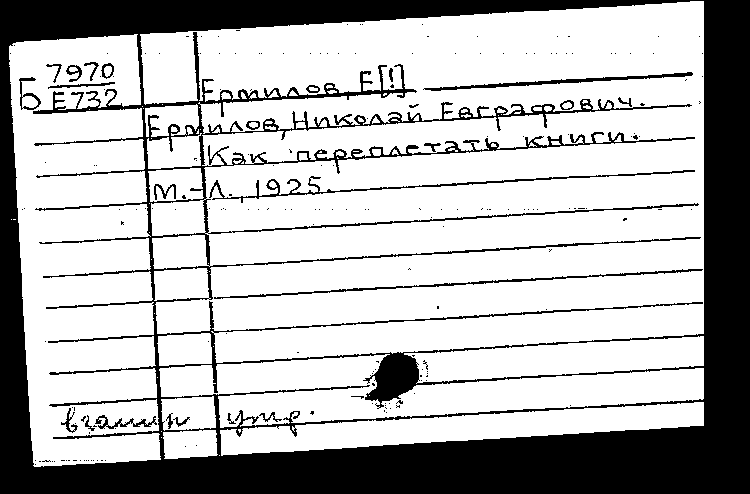 Б 7970
Е732
Ермилов, Е[!]
Ермилов, Николай Евграфович.
Как переплетать книги.
М.-Л., 1925.
взамен утр.